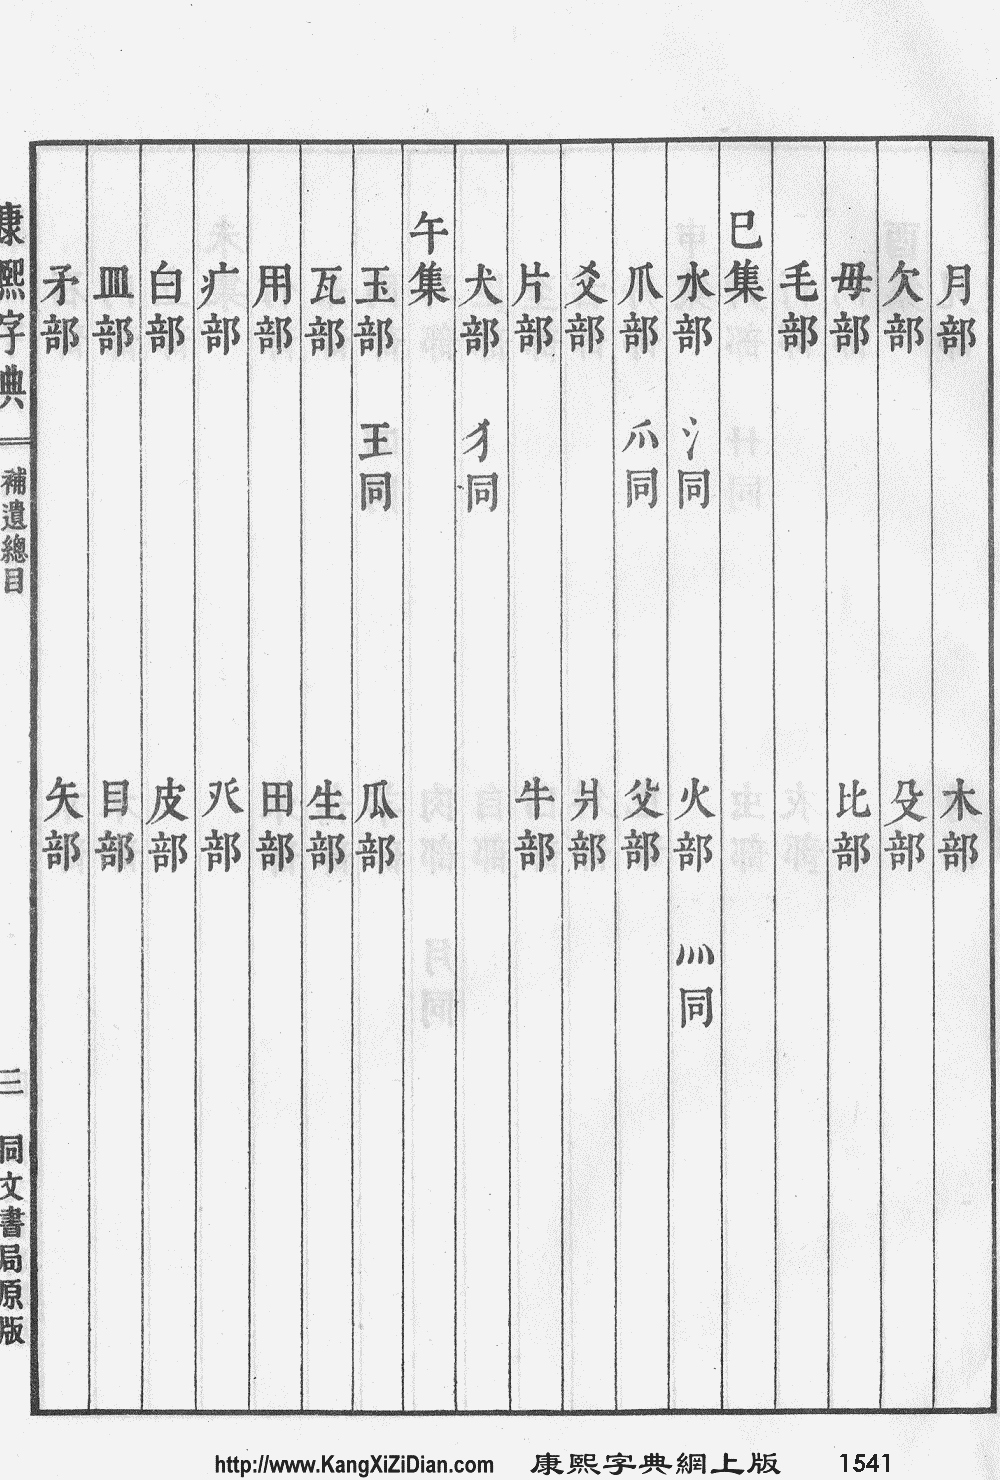 月部 木部
欠部 殳部
毋部 比部
毛部
巳集
水部 氵同 火部 灬同
爪部 爫同 父部
爻部 爿部
片部 牛部
犬部 犭同
午集
玉部 王同 瓜部
瓦部 生部
用部 田部
疒部 癶部
白部 皮部
皿部 目部
矛部 矢部
康熙字典 補遺總目 三 同文書局原版
http://www.KangXiZiDian.com 康熙字典網上版 1541